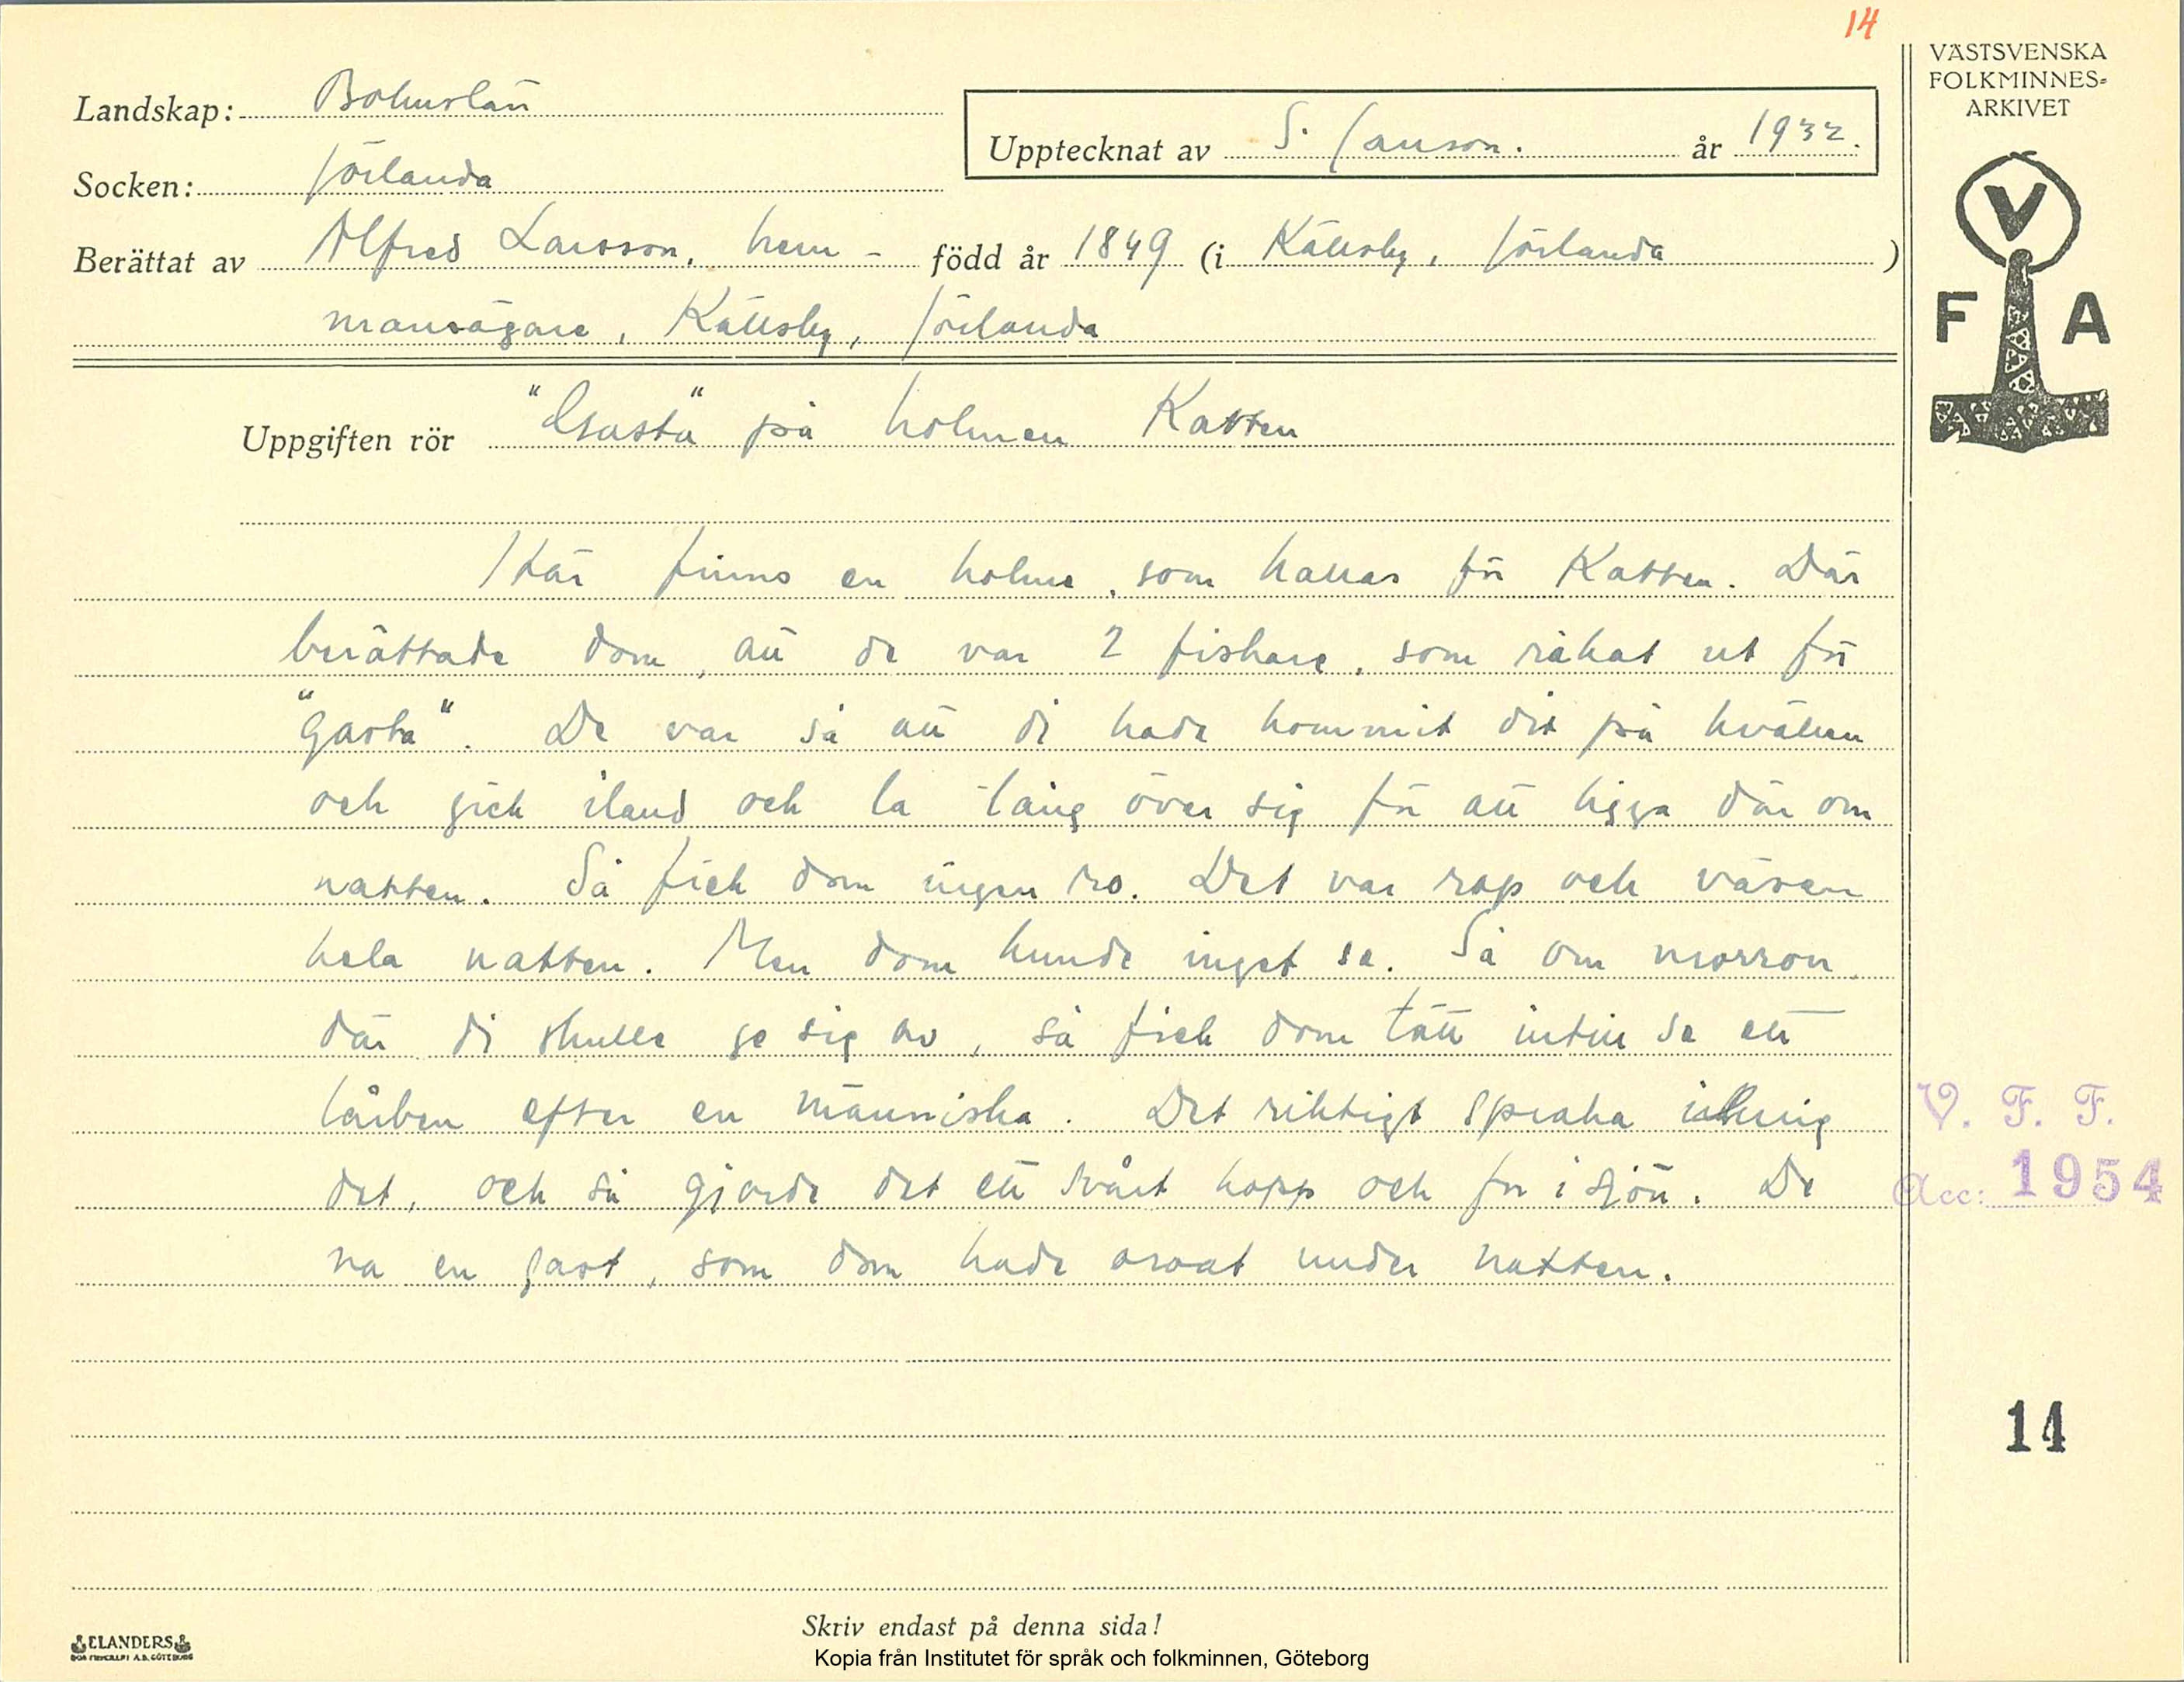 14
VÄSTSVENSKA
FOLKMINNES=
ARKIVET
Landskap: Bohuslän
Upptecknat av S. Janson. år 1932.
Socken: Jörlanda
Berättat av Alfred Larsson, hem- född år 1849 (i Källsby, Jörlanda )
mansägare, Källsby, Jörlanda
V
F A
Uppgiften rör "Gasta" på holmen Katten
Här finns en holme, som kallas för Katten. Där
berättade dom, att de var 2 fiskare, som råkat ut för
"gasta". De var så att di hade kommit dit på kvällen
och gick iland och la säng över sig för att ligga där om
natten. Så fick dom ingen ro. Det var rop och väsen
hela natten. Men dom kunde inget se. Så om morron
där di skulle ge sig av, så fick dom tätt intill se ett
lårben efter en människa. Det riktigt spraka ikring
det, och så gjorde det ett svårt hopp och for i sjön. De
va en gast, som dom hade oroat under natten.
V. F. F.
Acc: 1954
14
Skriv endast på denna sida!
ELANDERS
Kopia från Institutet för språk och folkminnen, Göteborg